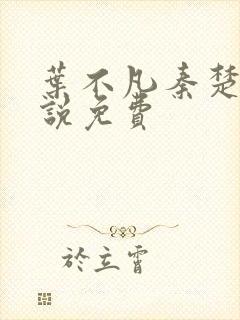 葉不凡秦楚
說免費
於立霄